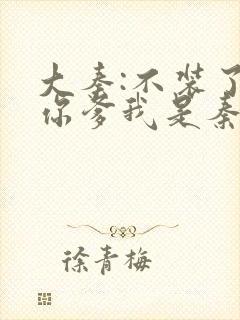 大秦:不装了
你爹我是秦
徐青梅